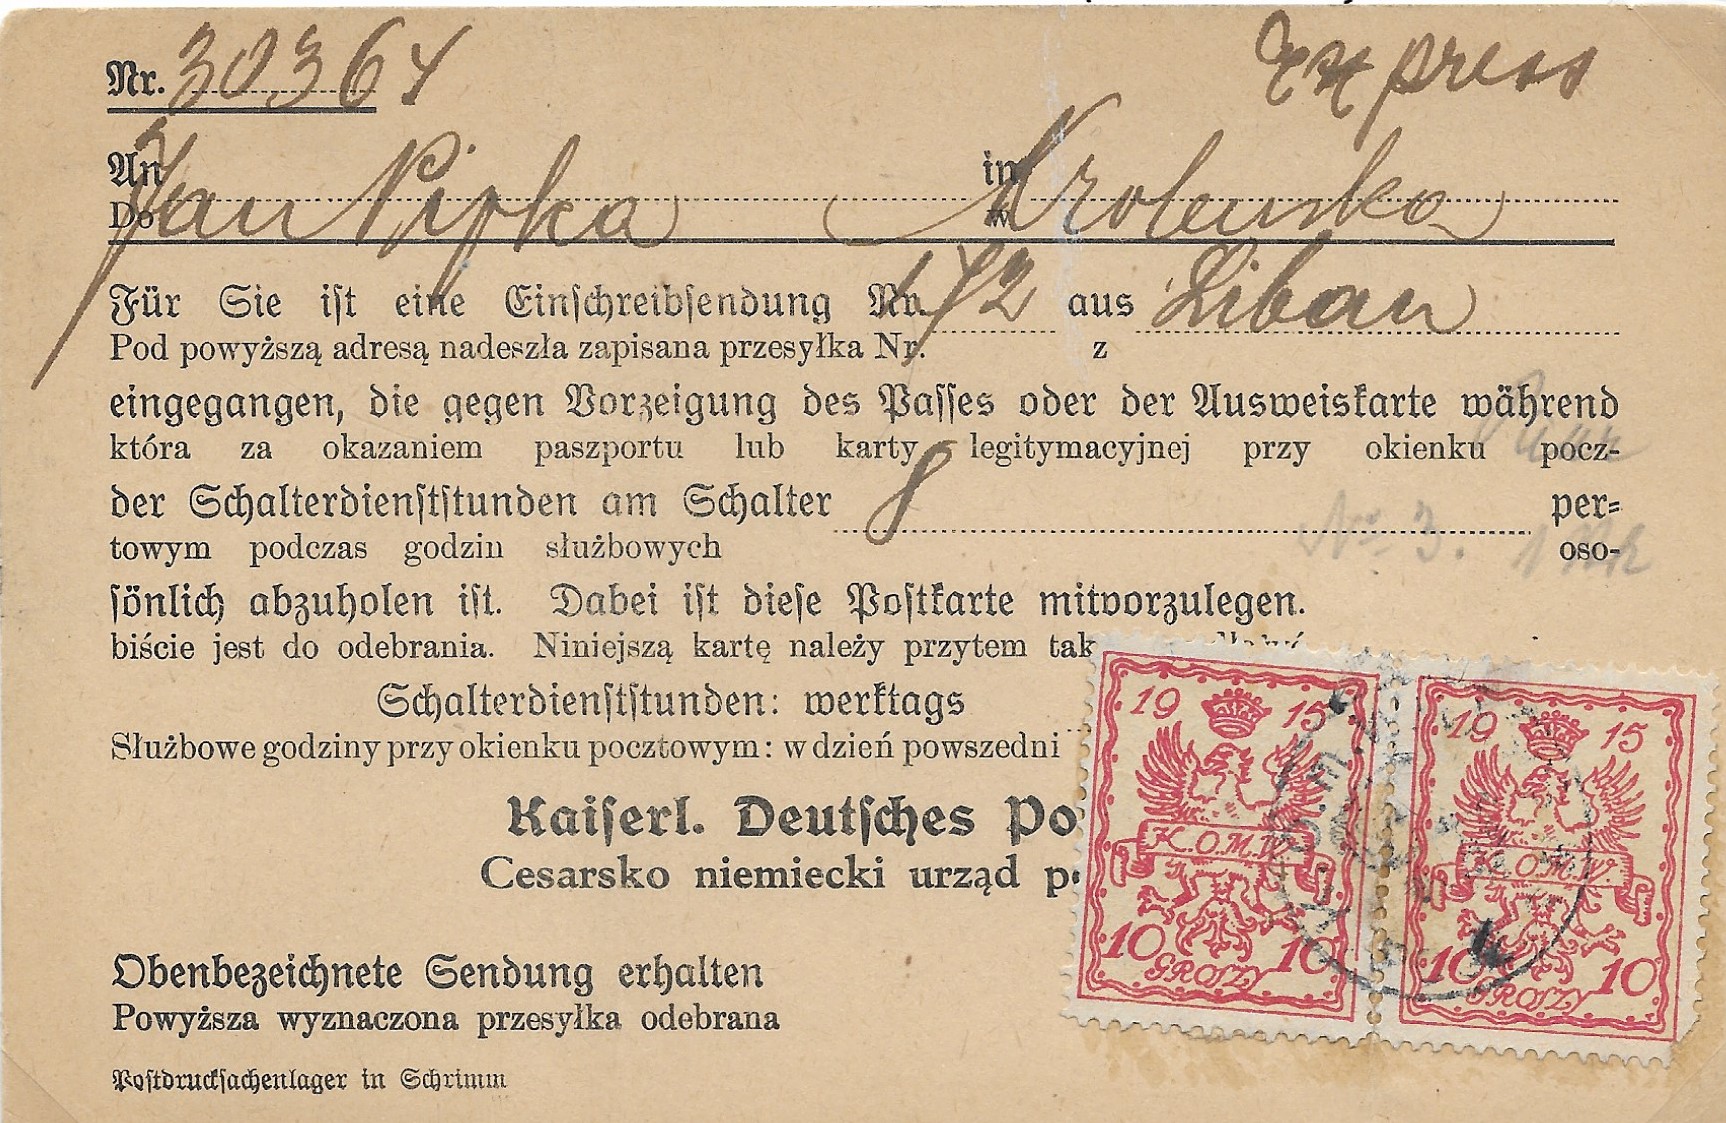 Nr. 30364 Express
An Jan in
Do w
Für Sie ist eine Einschreibsendung Nr. aus Liban
Pod powyższą adresą nadeszła zapisana przesyłka Nr. z
eingegangen, die gegen Vorzeigung des Passes oder der Ausweiskarte während
która za okazaniem paszportu lub karty legitymacyjnej przy okienku pocz-
der Schalterdienststunden am Schalter 8 per-
towym podczas godzin służbowych oso-
No 3.
sönlich abzuholen ist. Dabei ist diese Postkarte mitvorzulegen.
biście jest do odebrania. Niniejszą kartę należy przytem tak
Schalterdienststunden: werktags
Służbowe godziny przy okienku pocztowym: w dzień powszedni
Kaiserl. Deutsches Po
Cesarsko niemiecki urząd p
Obenbezeichnete Sendung erhalten
Powyższa wyznaczona przesyłka odebrana
Postdrucksachenlager in Schrimm
19 15
K.O.M.
10 10
GROSZY
19 15
K.O.M.W.
10 10
GROSZY